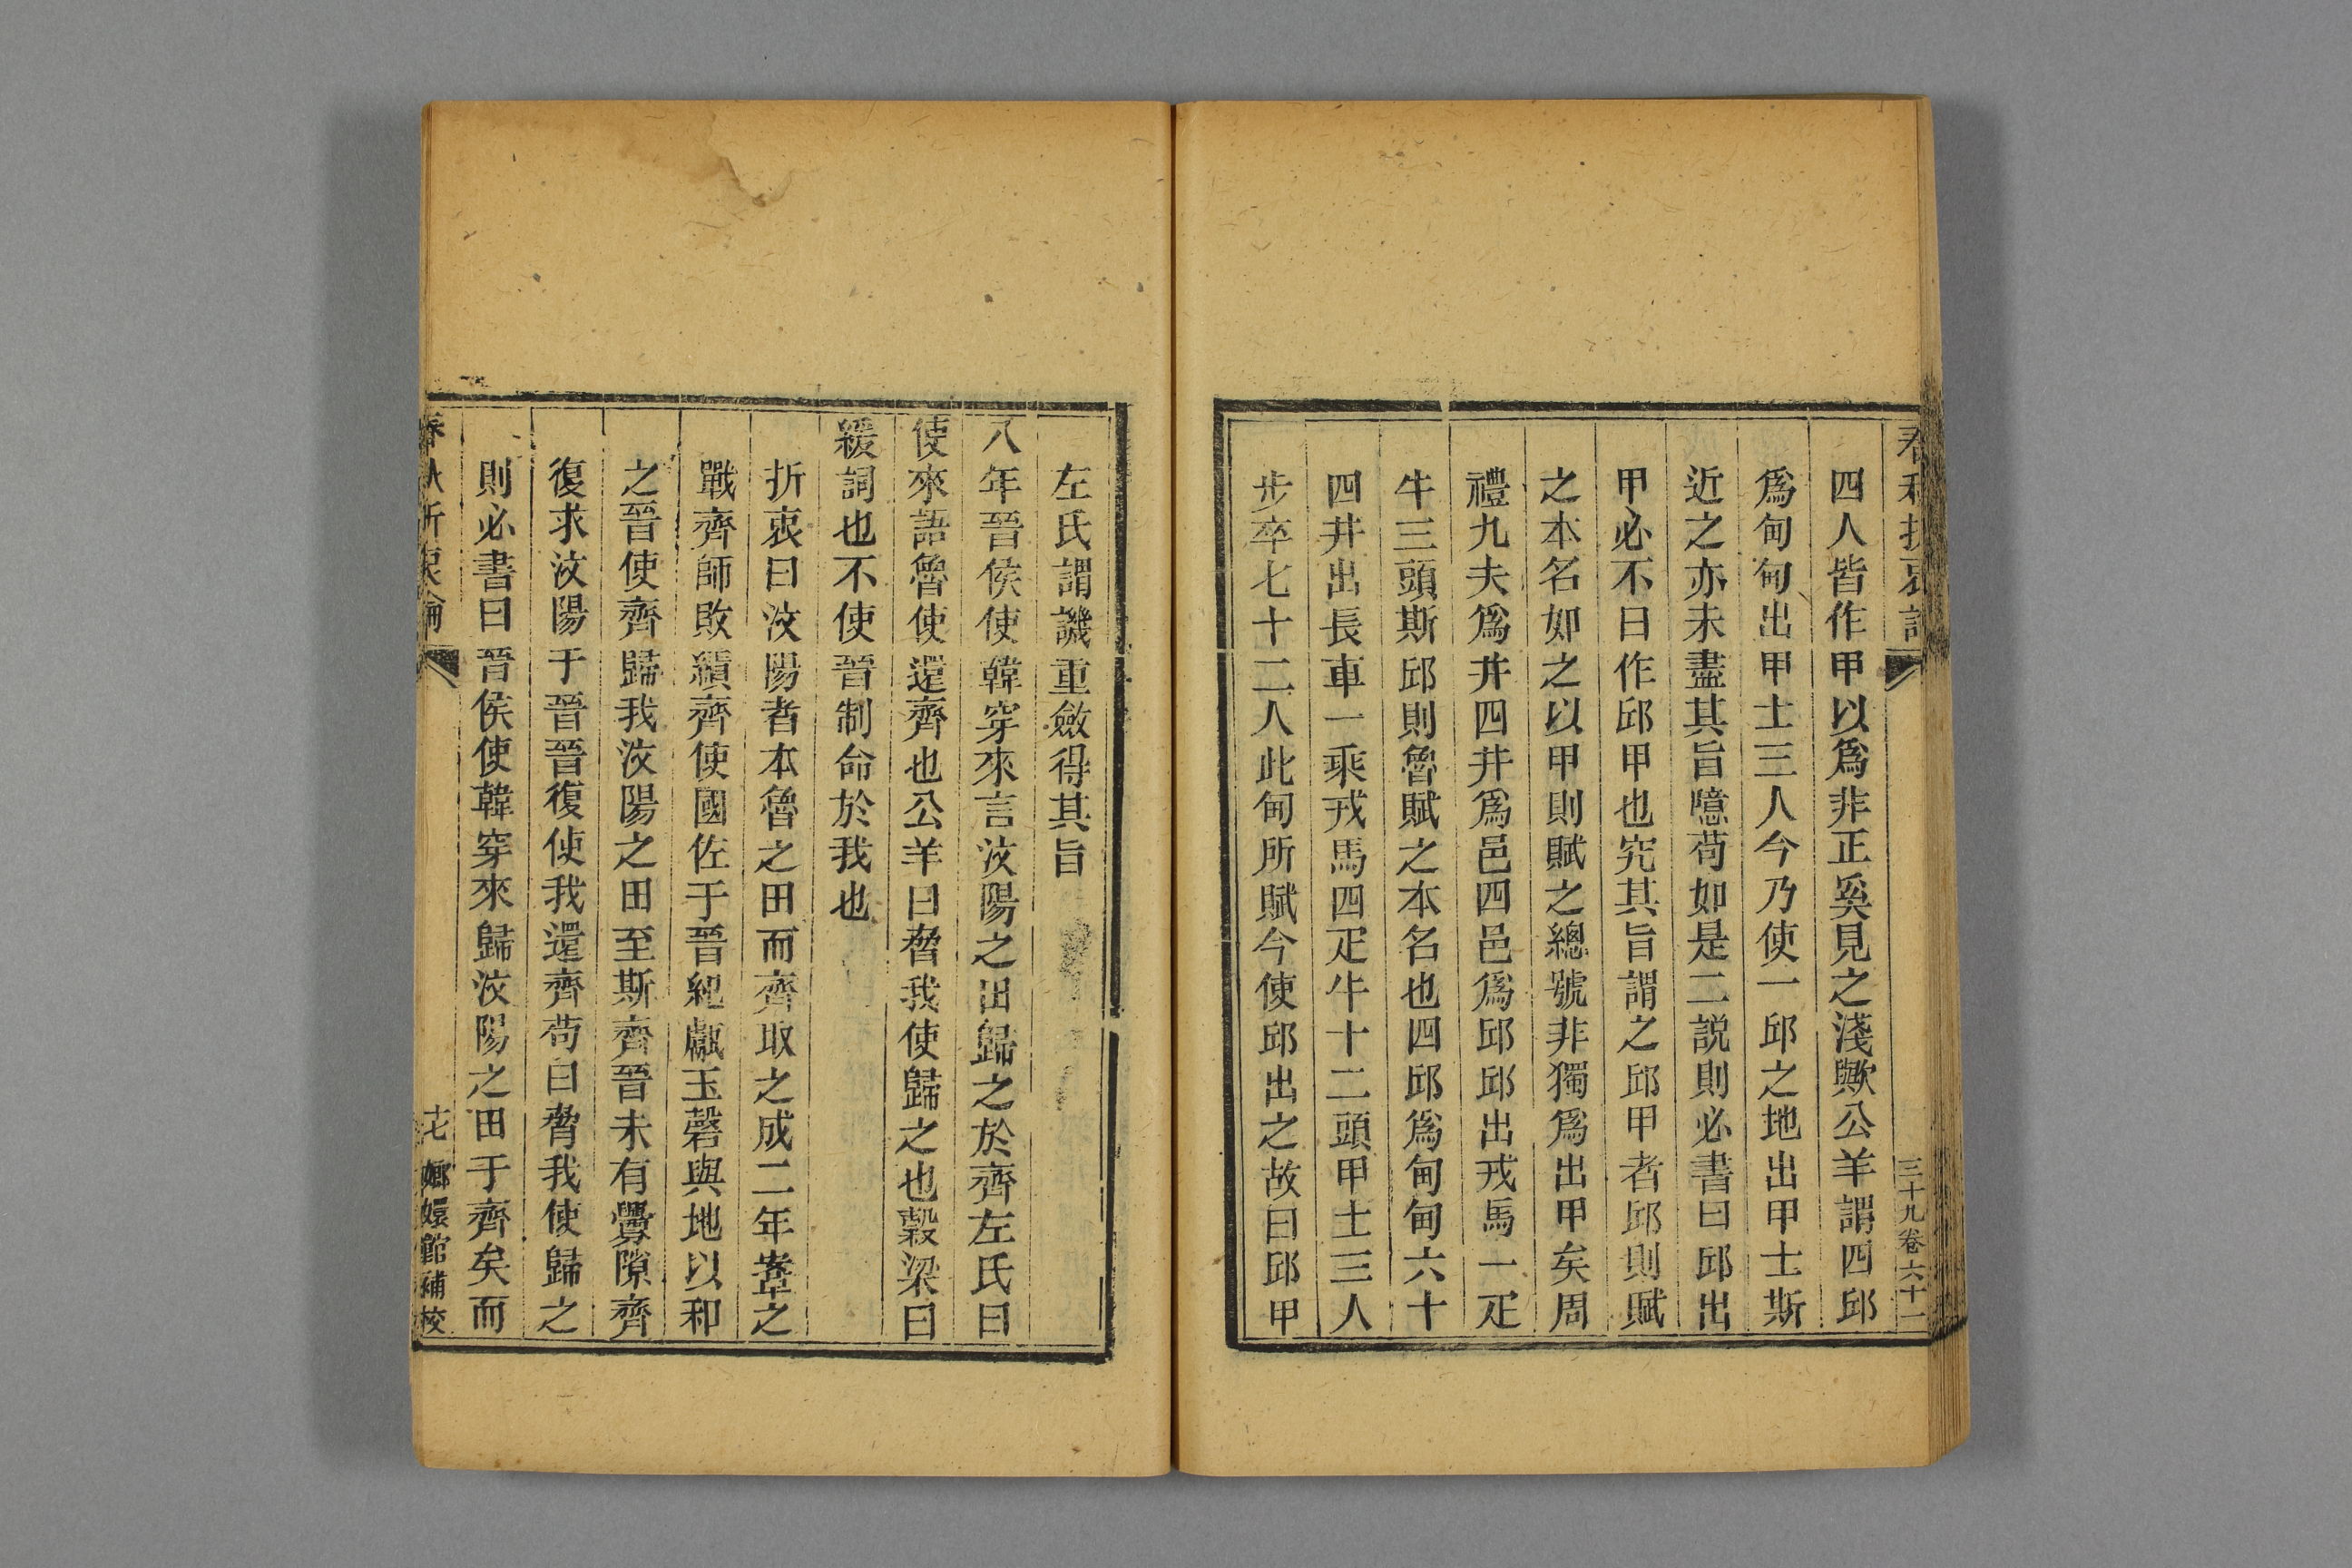 三十九卷六十一
四人皆作甲以爲非正奚見之淺歟公羊謂四邱
爲甸甸出甲士三人今乃使一邱之地出甲士斯
近之亦未盡其旨噫苟如是二説則必書曰邱出
甲必不曰作邱甲也究其旨謂之邱甲者邱則賦
之本名如之以甲則賦之總號非獨爲出甲矣周
禮九夫爲井四井爲邑四邑爲邱邱出戎馬一疋
牛三頭斯邱則魯賦之本名也四邱爲甸甸六十
四井出長車一乘戎馬四疋牛十二頭甲士三人
步卒七十二人此甸所賦今使邱出之故曰邱甲
左氏謂譏重斂得其旨
八年晉侯使韓穿來言汶陽之田歸之於齊左氏曰
使來語魯使還齊也公羊曰脅我使歸之也穀梁曰
緩詞也不使晉制命於我也
折衷曰汶陽者本魯之田而齊取之成二年鞌之
戰齊師敗績齊使國佐于晉紀甗玉磬與地以和
之晉使齊歸我汶陽之田至斯齊晉未有釁隙齊
復求汶陽于晉晉復使我還齊苟曰脅我使歸之
則必書曰晉侯使韓穿來歸汶陽之田于齊矣而
春秋折衷論 十七 嫏嬛館補校